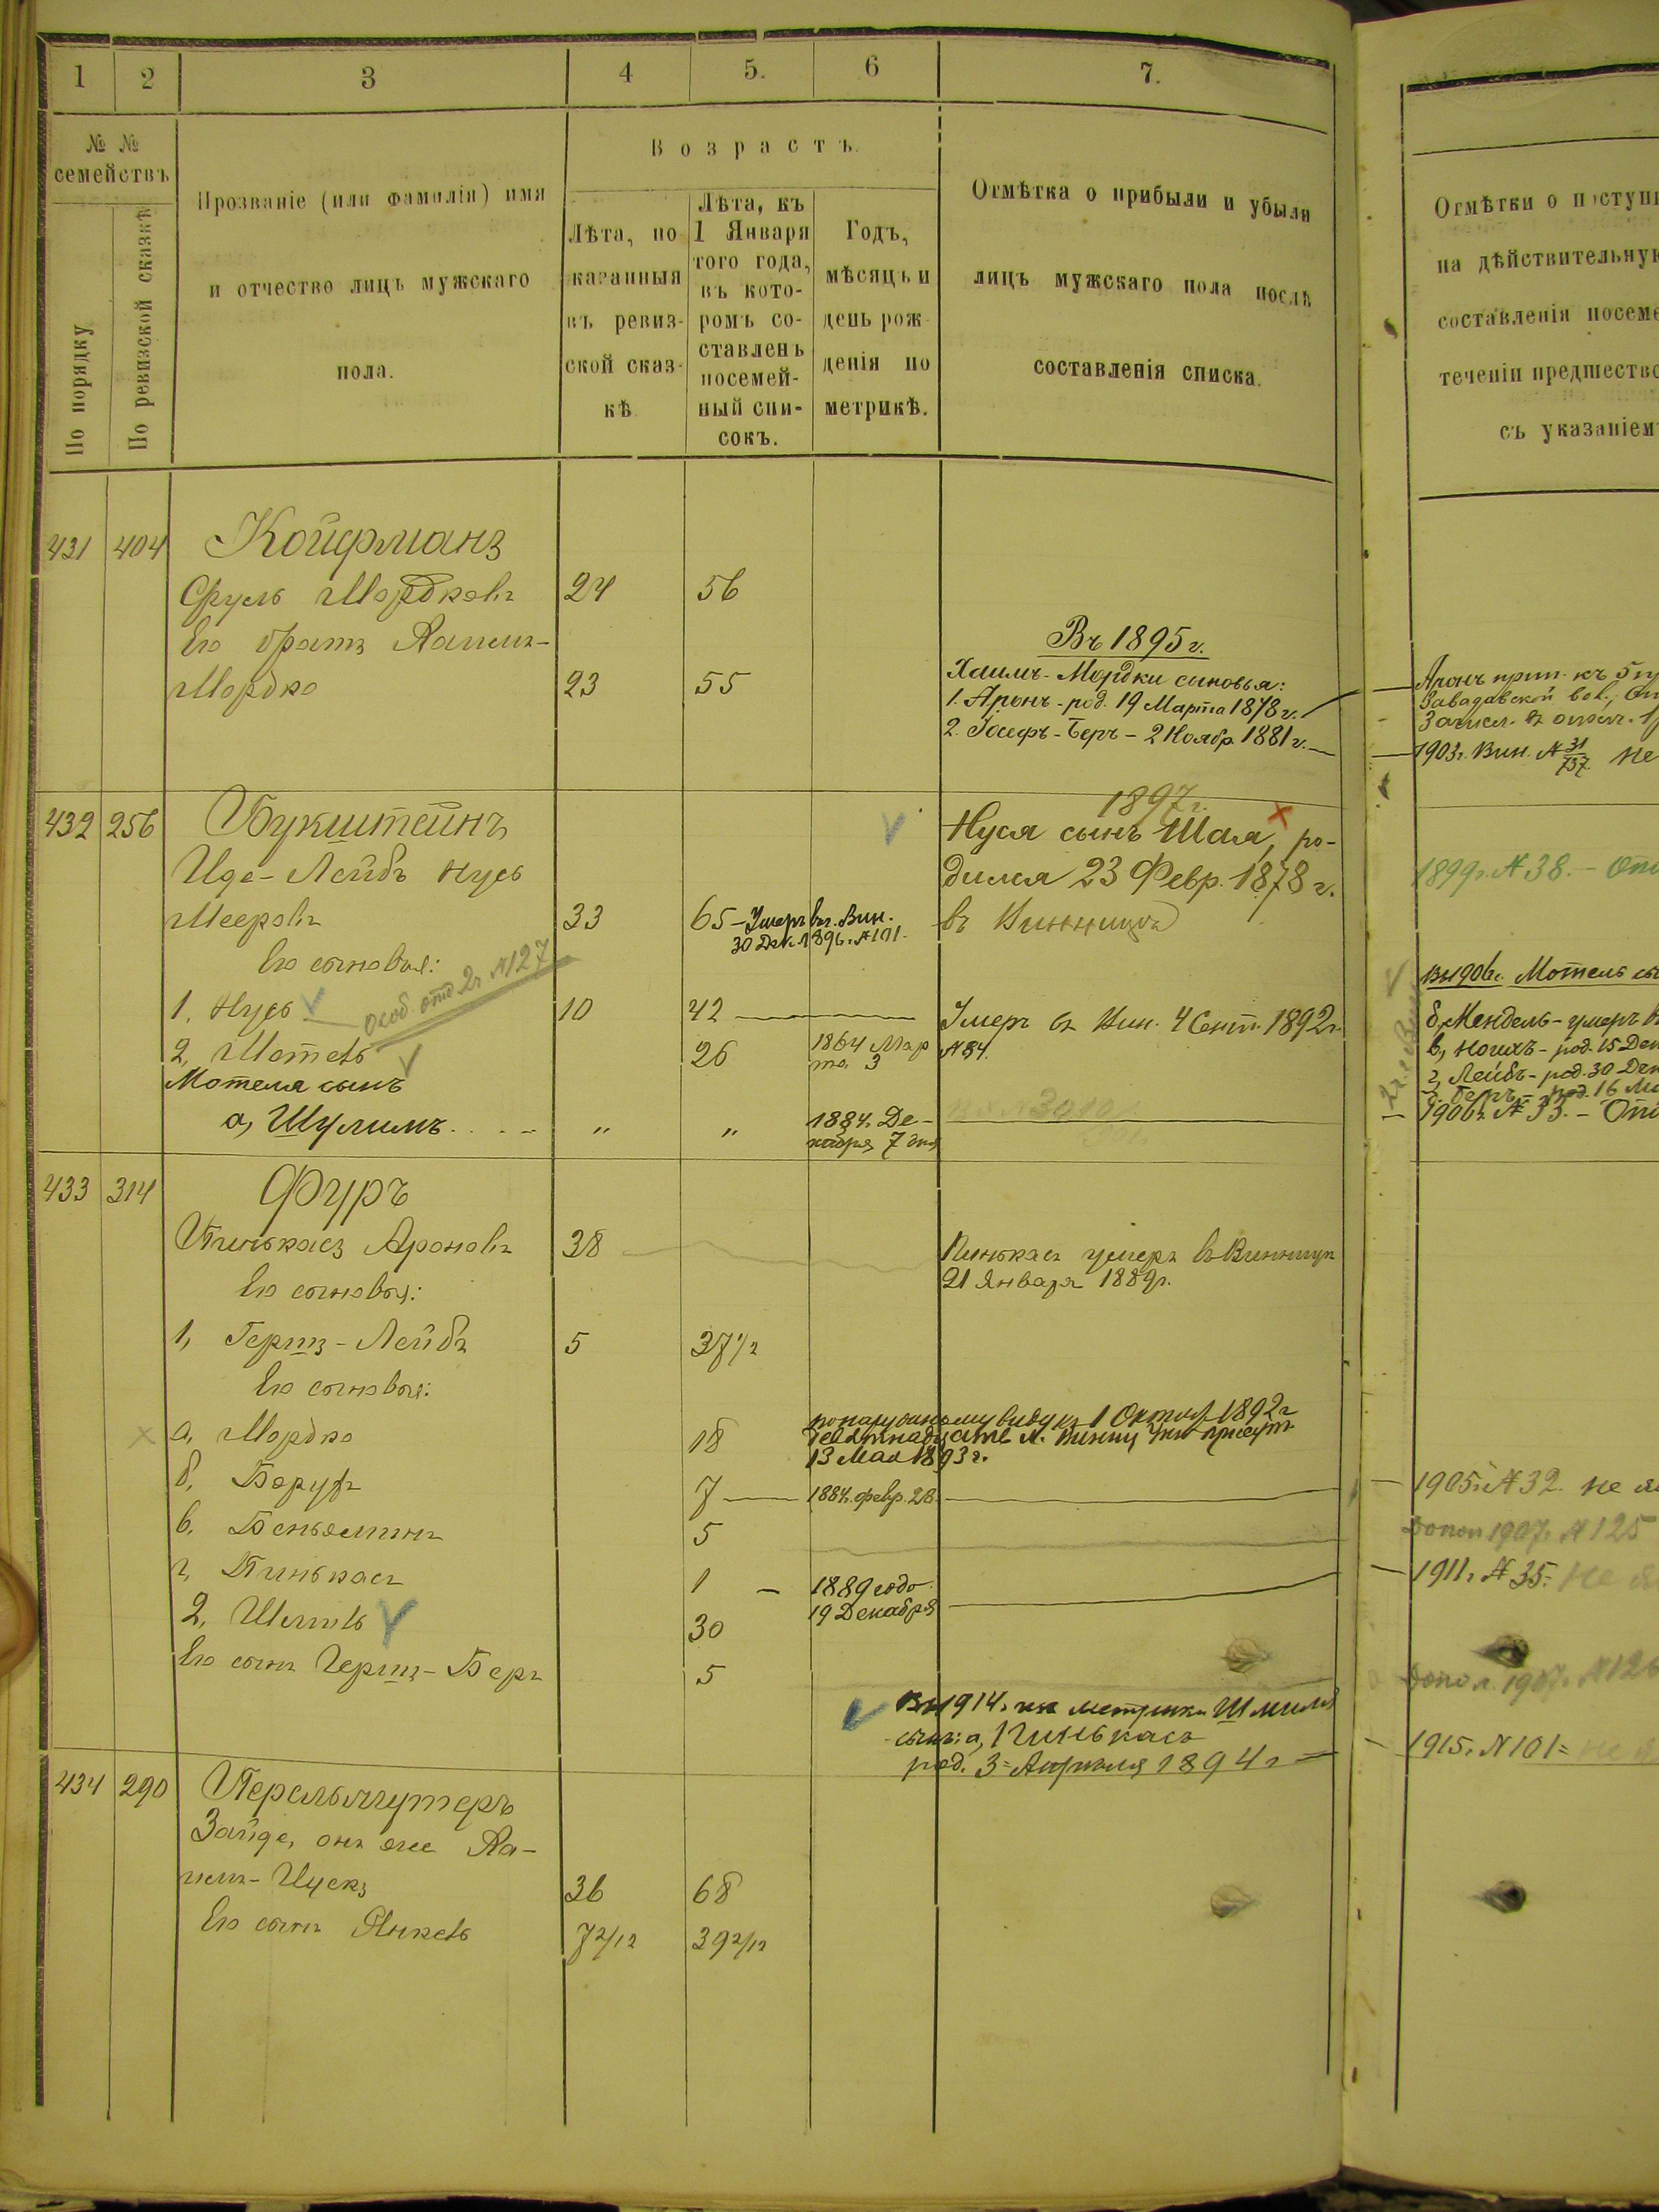 1 2 3 4 5. 6 7.
№ № семействъ
По порядку
По ревизской сказкѣ
Прозваніе (или фамилія) имя
и отчество лицъ мужскаго
пола.
Возрастъ.
Лѣта, по
казанныя
въ ревиз-
ской сказ-
кѣ
Лѣта, къ
1 Января
того года,
въ кото-
ромъ со-
ставленъ
посемей-
ный спи-
сокъ.
Годъ,
мѣсяцъ и
день рож
денія по
метрикѣ.
Отмѣтка о прибыли и убыли
лицъ мужскаго пола послѣ
составленія списка.
431 404 Койфманъ
Сруль Мордковъ 24 56
Его братъ Хаимъ-
Мордко 23 55
Въ 1895 г.
Хаимъ-Мордки сыновья:
1. Аронъ - род. 19 Марта 1878 г.
2. Іосефъ-Беръ - 2 Ноябр. 1881 г.
432 256 Букштейнъ
Иде-Лейбъ Нусь
Мееровъ 33 65 - Умеръ въ г. Вин.
30 Дек. 1896 г. № 101.
Его сыновья:
1, Нусь 10 42
Особ. отд 2 г. № 127
2, Мотель 26 1864 Мар
та 3
Мотеля сынъ
а, Шулимъ . . . - „ „ 1884 г. Де-
кабря 7 дня
1897 г.
Нуся сынъ Шая, ро-
дился 23 Февр. 1878 г.
въ Винницѣ
Умеръ въ Вин. 4 Сент. 1892 г.
№ 84.
433 314 Фуръ
Пинькасъ Ароновъ 38
Пинькасъ умеръ въ Винницѣ
21 Января 1889 г.
Его сыновья:
1, Гершъ-Лейбъ 5 37 1/2
Его сыновья:
а, Мордко 18
по наружному виду къ 1 Октяб. 1892 г.
13 Мая 1893 г.
б, Борухъ 7 1884. февр. 28.
в, Беньяминъ 5
г, Пинькасъ 1 - 1889 года
19 Декабря
2, Шмиль 30
Его сынъ Гершъ-Беръ 5
Въ 1914 г. по метрики Шмиля
сынъ: а, Пинькасъ
род. 3 = Апрѣля 1894 г =
434 290 Перельмутеръ
Зайде, онъ же Ха-
имъ-Ицекъ 36 68
Его сынъ Янкель 7 2/12 39 2/12
Отмѣтки о поступ
на дѣйствительную
составленія посеме
теченіи предшество
съ указаніем
Аронъ прип. къ 5 пр
1903 г. Вин. № 31/737 не
1899 г. № 38. -
Въ 1906 г. Мотель
б, Мендель - умеръ
в, Ноихъ - род. 15 Дек
г, Лейбъ - род. 30 Дек
д, Беръ - род. 16
1906 г. № 33. -
1905 г. № 32. не яв
Допол 1907 г. № 125
1911 г. № 35. = не яв
Допол. 1907 г. № 126
1915 г. № 101 = не